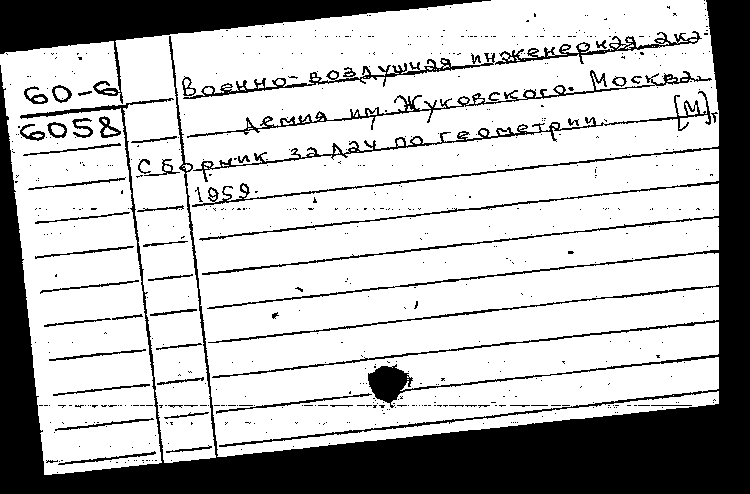 60-6
6058
Военно-воздушная инженерная ака-
демия им. Жуковского. Москва.
Сборник задач по геометрии. [М],
1959.